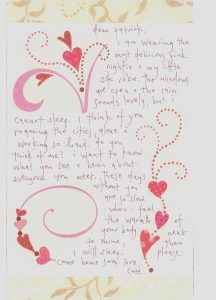 dear patrick,
I am wearing the
most delicious pink
nightie & my little
silk robe. The windows
are open & the rain
sounds lovely, but I
cannot sleep. I think of you
roaming the cities alone &
working so hard. do you
think of me? I want to know
what you see & hear about
everyone you meet. These days
without you
are so slow.
when I feel
the warmth of
your body next
to mine, then
I will sleep. please
come home soon love
Cate